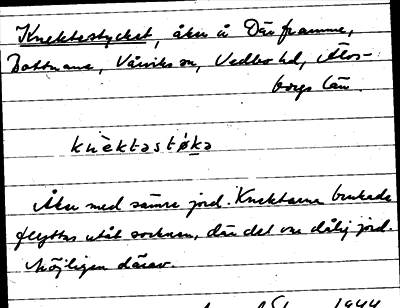 Knektestycket, åker å Där framme,
Bottnane, Vårviks sn, Vedbo hd, Älvs-
borgs län.
knèktəstø̀kə
Åker med sämre jord. Knektarna brukade
flyttas utåt socknen, där det var dålig jord.
Möjligen därav.
1944